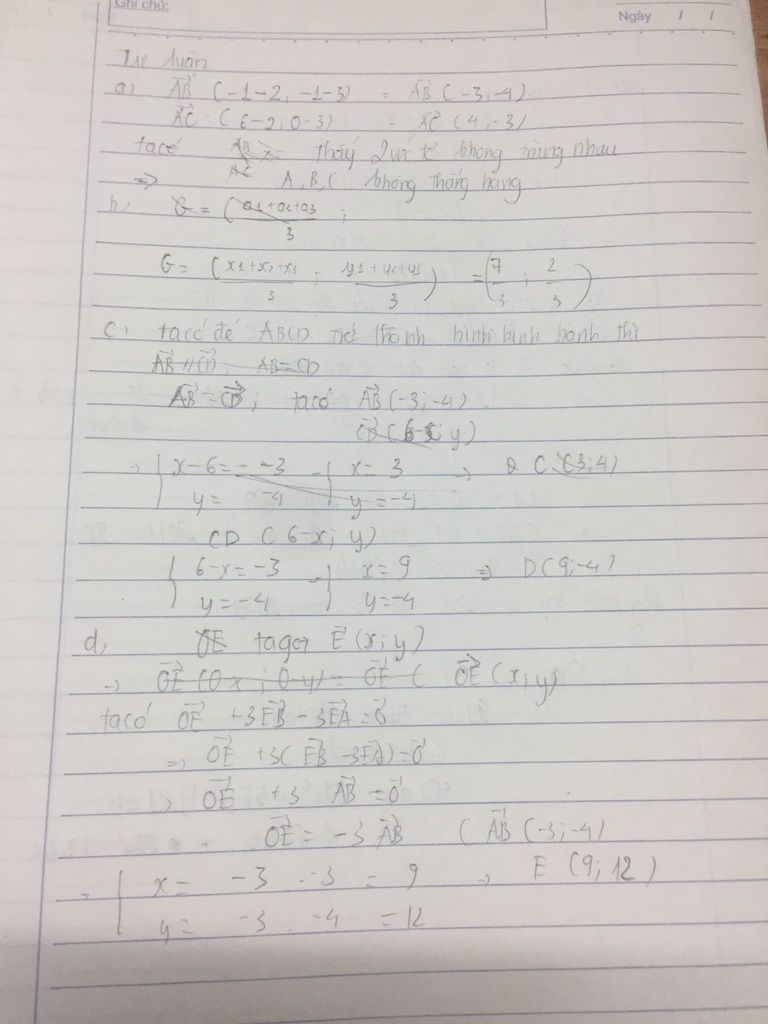 Ghi chú:
Ngày / /
Tự luận
a) AB→ (-1-2; -1-3) = AB→ (-3; -4)
AC→ (6-2; 0-3) = AC→ (4; -3)
ta có thấy 2 vtơ không trùng nhau
=> A, B, C không thẳng hàng
b, G = (a1+a2+a3 ;
3
G = (x1+x2+x3 ; y1+y2+y3) = (7 ; 2)
3 3 3 3
c, ta có để ABCD trở thành hình bình hành thì
AB→ // CD→, AB = CD
AB→ = CD→; ta có AB→ (-3; -4)
CD→ (6-x; y)
→ { x-6 = -3 { x = 3 → D C (3; 4)
y = -4 y = -4
CD ( 6-x; y)
{ 6-x = -3 { x = 9 => D(9; -4)
y = -4 y = -4
d, OE ta gọi E (x; y)
→ OE→ (0-x; 0-y) = OE→ ( OE→ (x; y)
ta có OE→ + 3EB→ - 3EA→ = 0→
=> OE→ + 3( EB→ - 3EA→) = 0→
OE→ + 3 AB→ = 0→
OE→ = -3 AB→ ( AB→ (-3; -4)
= { x = -3 . -3 = 9 → E (9; 12)
y = -3 . -4 = 12